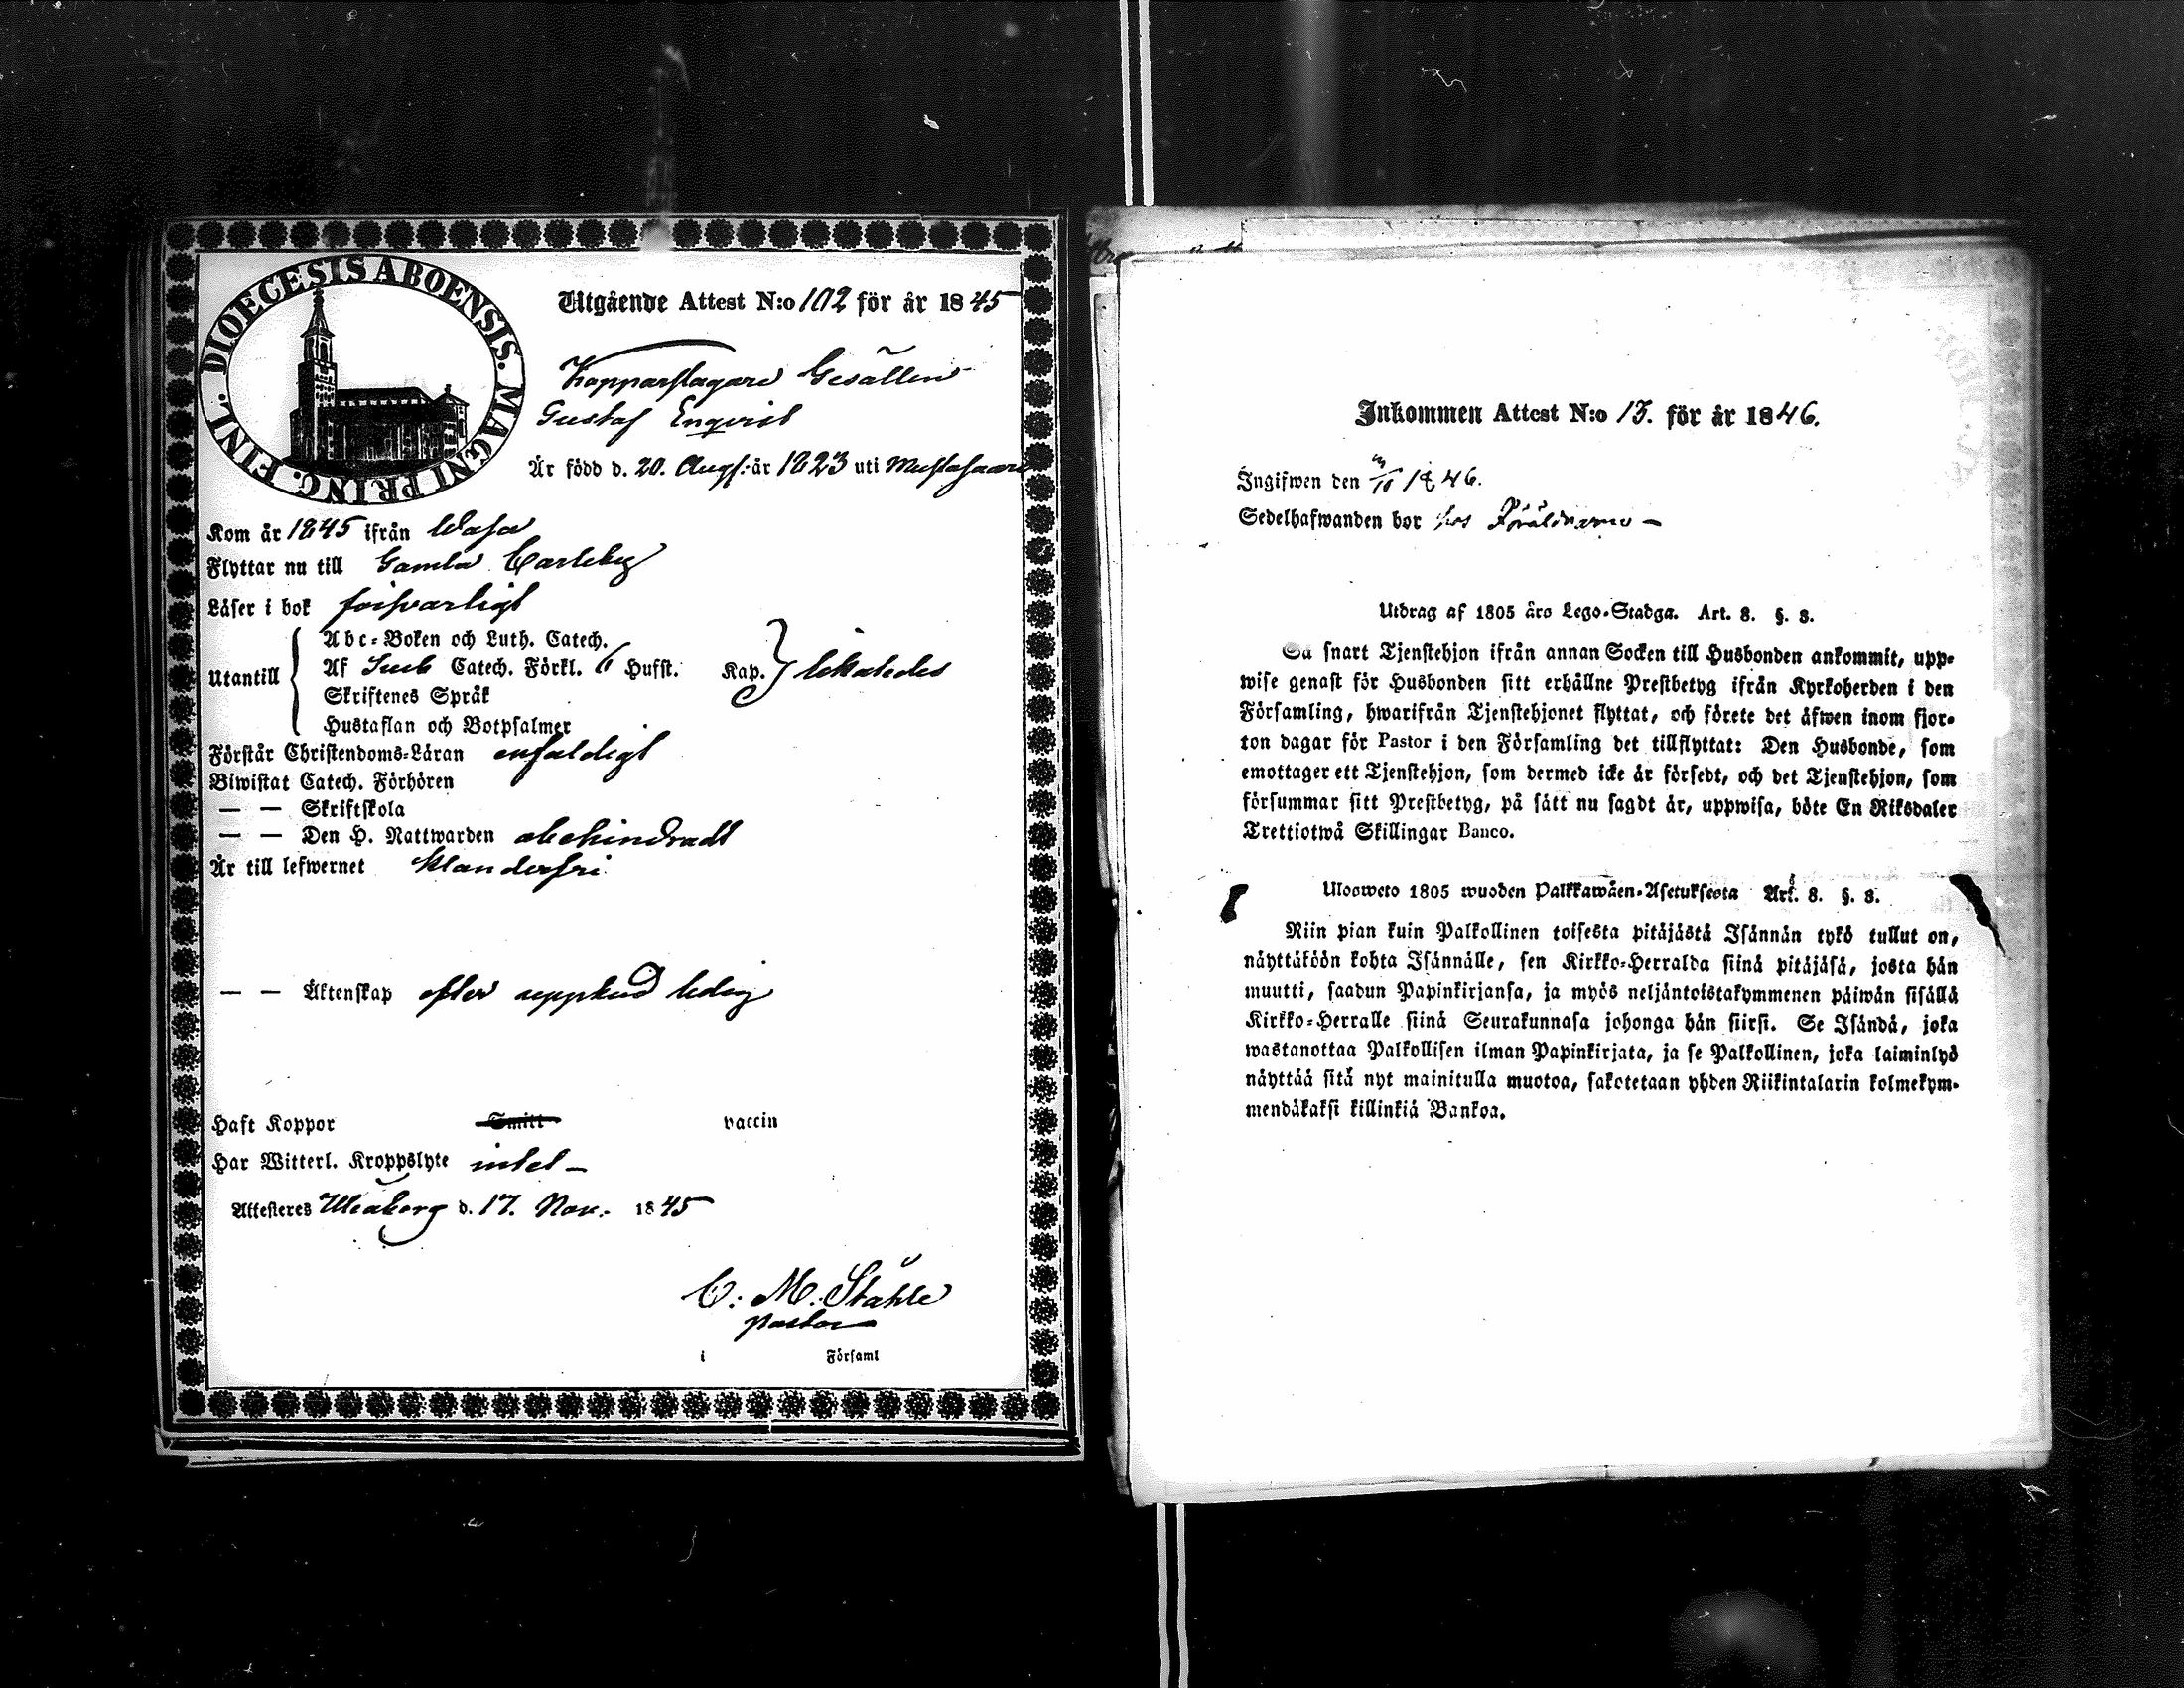 DIOECESIS ABOENSIS. MAGNI PRINC. FINL.
Utgående Attest N:o 102 för år 1845
Kopparslagare Gesällen
Gustaf Enqvist
Är född d. 20. Aug: år 1823 uti Mustasaari
Kom år 1845 ifrån Wasa
Flyttar nu till Gamla Carleby
Läser i bok försvarligt
Utantill
Abc-Boken och Luth. Catech.
Af Sveb Catech. Förkl. 6 Hufst. Kap. likaledes
Skriftenes Språk
Hustaflan och Botpsalmer
Förstår Christendoms-Läran enfaldigt
Biwistat Catech. Förhören
— — Skriftskola
— — Den H. Nattwarden obehindradt
Är till lefwernet klanderfri
— — Äktenskap efter uppbud ledig
Haft Koppor Smitt vaccin
Har Witterl. Kroppslyte intet —
Attesteres Uleåborg d. 17. Nov. 1845
C: M: Ståhle
pastor
i Församl
Inkommen Attest N:o 13. för år 1846.
Ingifwen den 1846.
Sedelhafwanden bor hos Föräldrarne —
Utdrag af 1805 års Lego-Stadga. Art. 8. §. 3.
Så snart Tjenstehjon ifrån annan Socken till Husbonden ankommit, upp-
wise genast för Husbonden sitt erhållne Prestbetyg ifrån Kyrkoherden i den
Församling, hwarifrån Tjenstehjonet flyttat, och förete det äfwen inom fjor-
ton dagar för Pastor i den Församling det tillflyttat: Den Husbonde, som
emottager ett Tjenstehjon, som dermed icke är försedt, och det Tjenstehjon, som
försummar sitt Prestbetyg, på sätt nu sagdt är, uppwisa, böte En Riksdaler
Trettiotwå Skillingar Banco.
Ulosweto 1805 wuoden Palkkawäen-Asetuksesta Art. 8. §. 3.
Niin pian kuin Palkollinen toisesta pitäjästä Isännän tykö tullut on,
näyttäköön kohta Isännälle, sen Kirkko-Herralda siinä pitäjäsä, josta hän
muutti, saadun Papinkirjansa, ja myös neljäntoistakymmenen päiwän sisällä
Kirkko-Herralle siinä Seurakunnasa johonga hän siirsi. Se Isändä, joka
wastanottaa Palkollisen ilman Papinkirjata, ja se Palkollinen, joka laiminlyö
näyttää sitä nyt mainitulla muotoa, sakotetaan yhden Riikintalarin kolmekym-
mendäkaksi killinkiä Bankoa.